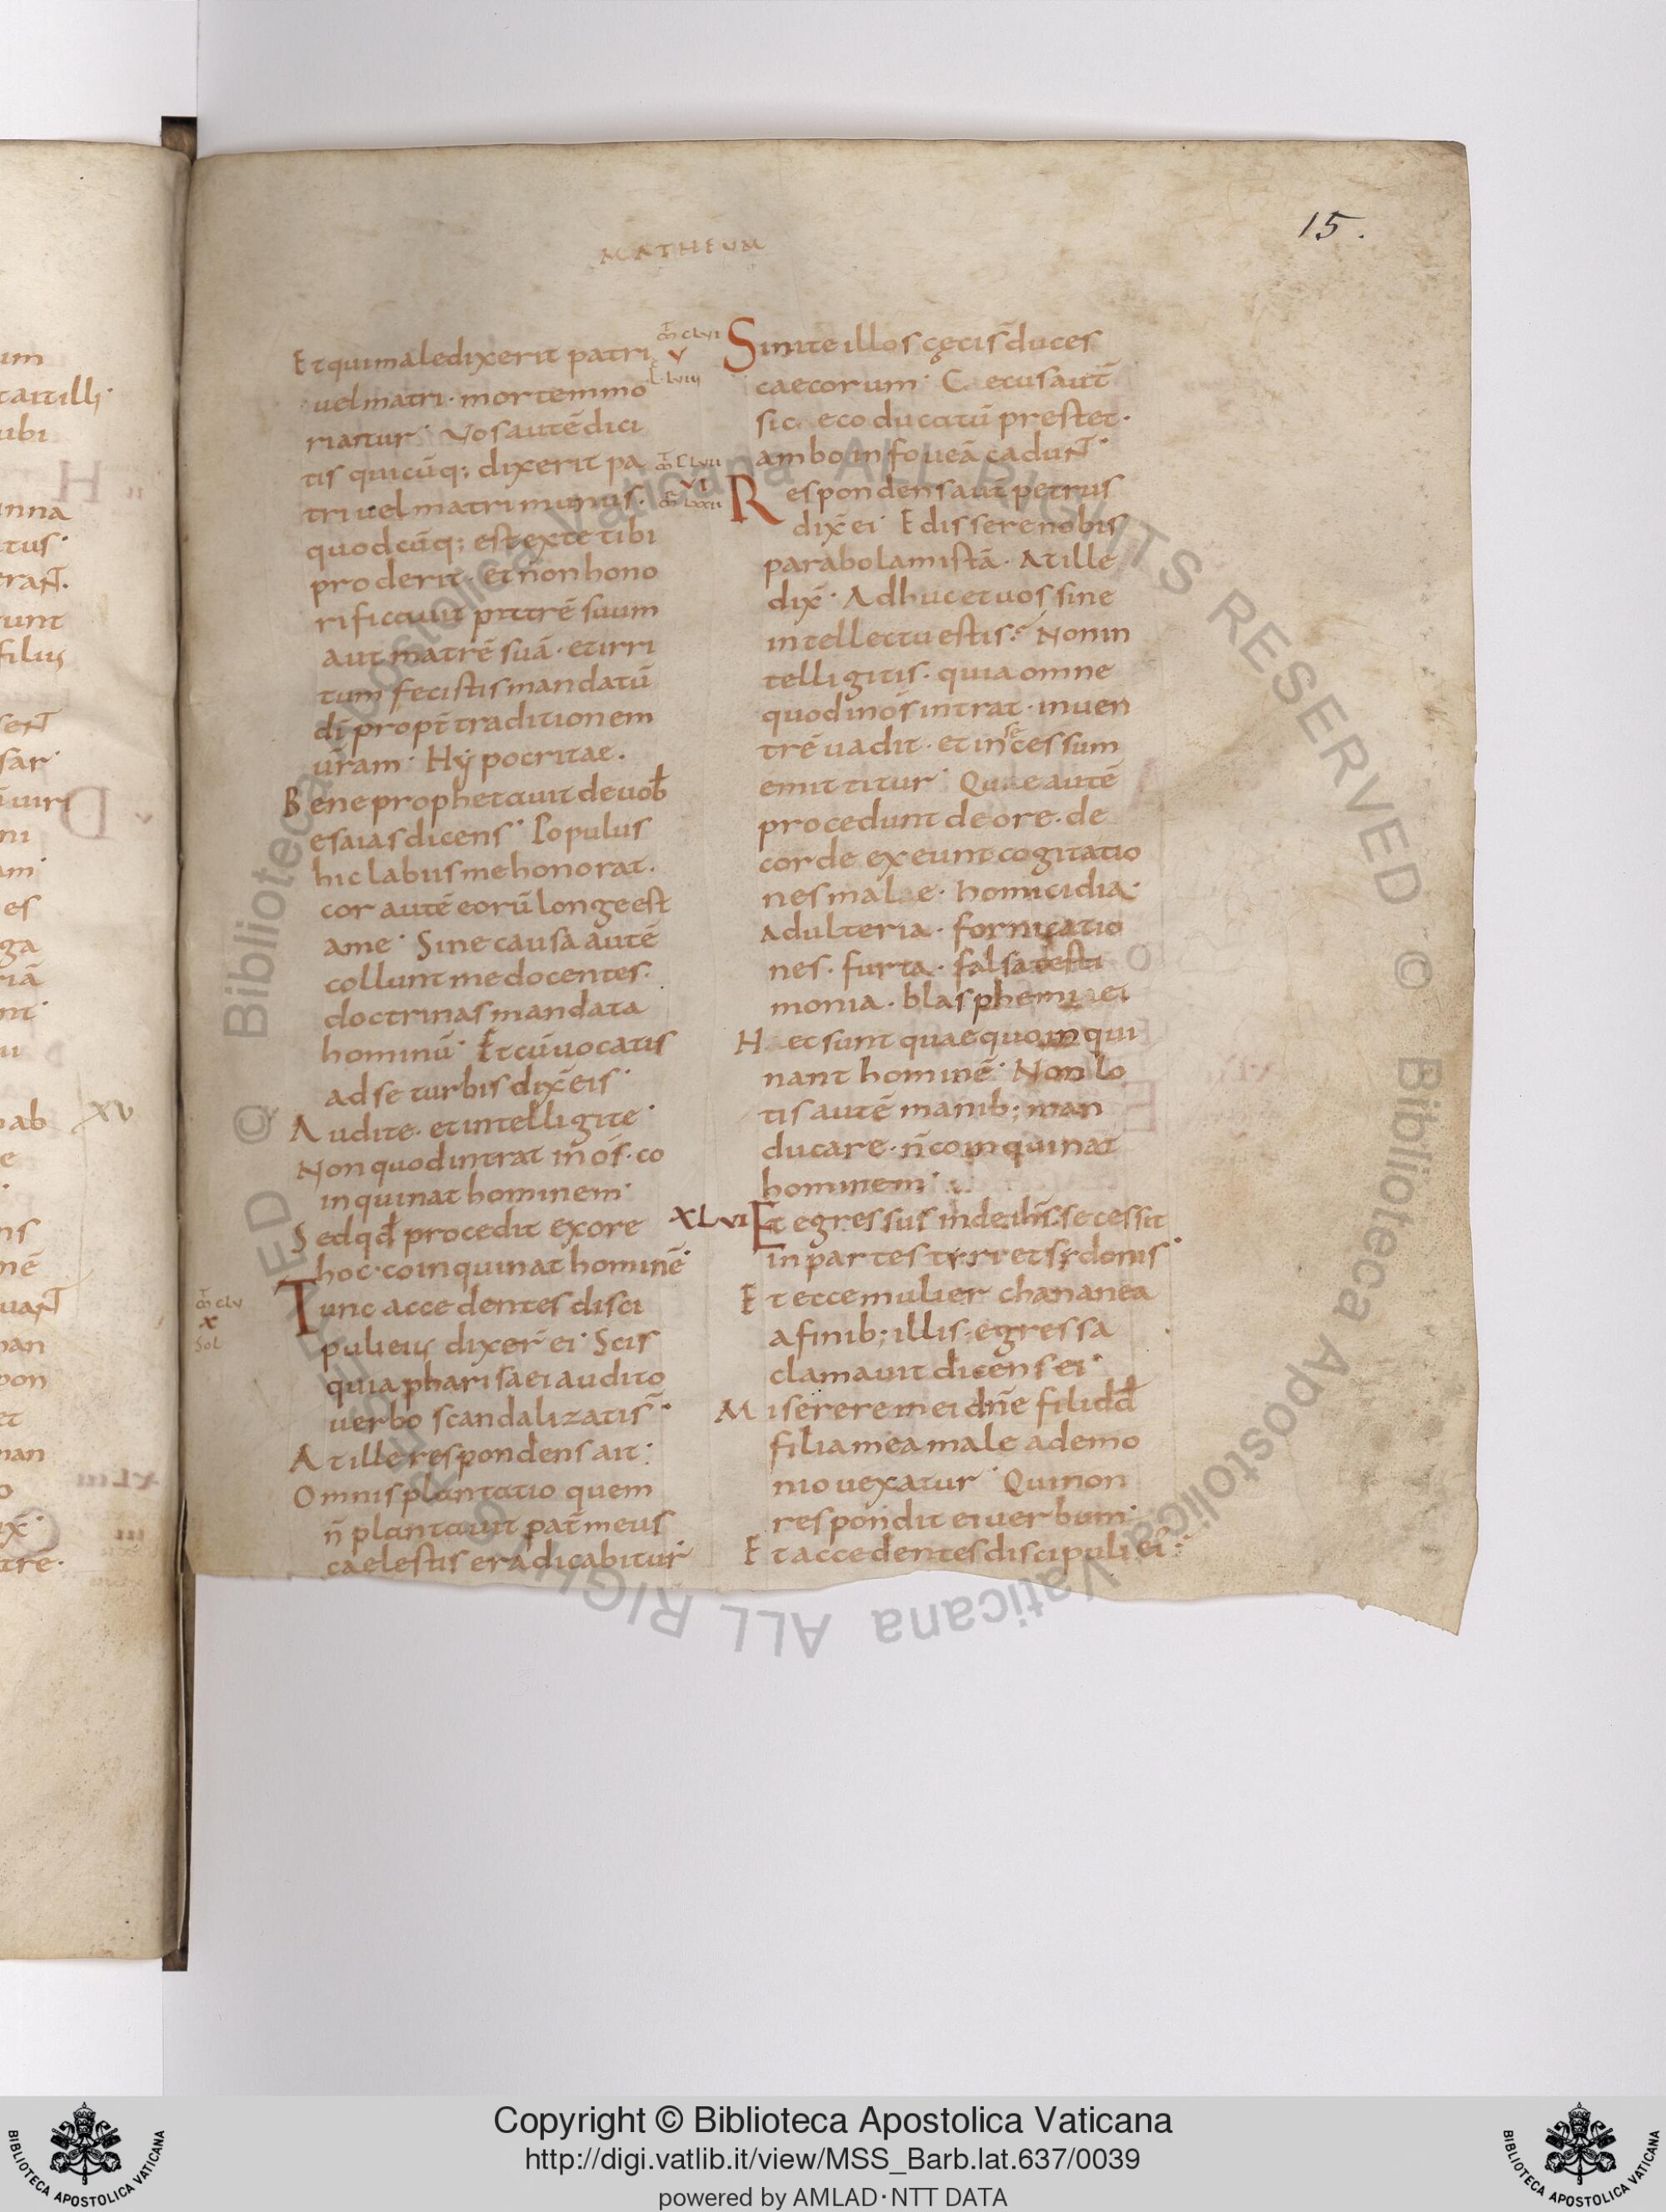 MATHEUM
15.
Et qui maledixerit patri
uel matri · morte mmo
riatur · Vos autē dici
tis quicūq; dixerit pa
tri uel matri munus ·
quodcūq; est ex te tibi
proderit · et non hono
rificauit patrē suum
aut matrē suā · et irri
tum fecistis mandatū
dī propt̄ traditionem
ūram · Hypocritae ·
Bene prophetauit de uob̄
esaias dicens · Populus
hic labiis me honorat ·
cor autē eorū longe est
a me · Sine causa autē
collunt me docentes ·
doctrinas mandata
hominū · Et cū uocatis
ad se turbis dix̄ eis ·
Audite · et intelligite ·
Non quod intrat in os · co
inquinat hominem ·
Sed qd̄ procedit ex ore
hoc · coinquinat hominē ·
m̄ CLV
X
SOL
Tunc accedentes disci
puli eius dixer̄ ei · Scis
quia pharisaei audito
uerbo scandalizatis̄ ·
At ille respondens ait ·
Omnis plantatio quem
n̄ plantauit pat̄ meus
caelestis eradicabitur ·
m̄ CLVI
V
L · LVIII
Sinite illos cęci s̄ duces
caecorum · C ecus aut̄
si c eco ducatū prestet ·
ambo in foueā caduNT ·
m̄ CLVII
VI
LXXII
Respondens aut̄ petrus
dix̄ ei · Edissere nobis
parabolam istā · At ille
dix̄ · Adhuc et uos sine
intellectu estis · Non in
telligitis · quia omne
quod in os intrat · in uen
trē uadit · et in secessum
emittitur · Quae autē
procedunt de ore · de
corde exeunt cogitatio
nes mal e · homicidia ·
adulteria · fornicatio
nes · furta · falsa testi
monia · blasphemi ei
H ec sunt quae quoinqui
nant hominē · Non lo
tis autē manib; man
ducare · n̄ coinquinat
hominem ·
XLVI Et egressus inde ih̄s · secessit
in partes tyri et sydonis ·
Et ecce mulier chananea
a finib; illis · egressa
clamauit dicens ei ·
Miserere mei dn̄e fili dd̄
filia mea male a demo
nio uexatur · Qui non
respondit ei uerbum ·
Et accedentes discipuli ei ·
XV
Copyright © Biblioteca Apostolica Vaticana
http://digi.vatlib.it/view/MSS_Barb.lat.637/0039
powered by AMLAD·NTT DATA
BIBLIOTECA APOSTOLICA VATICANA
BIBLIOTECA APOSTOLICA VATICANA